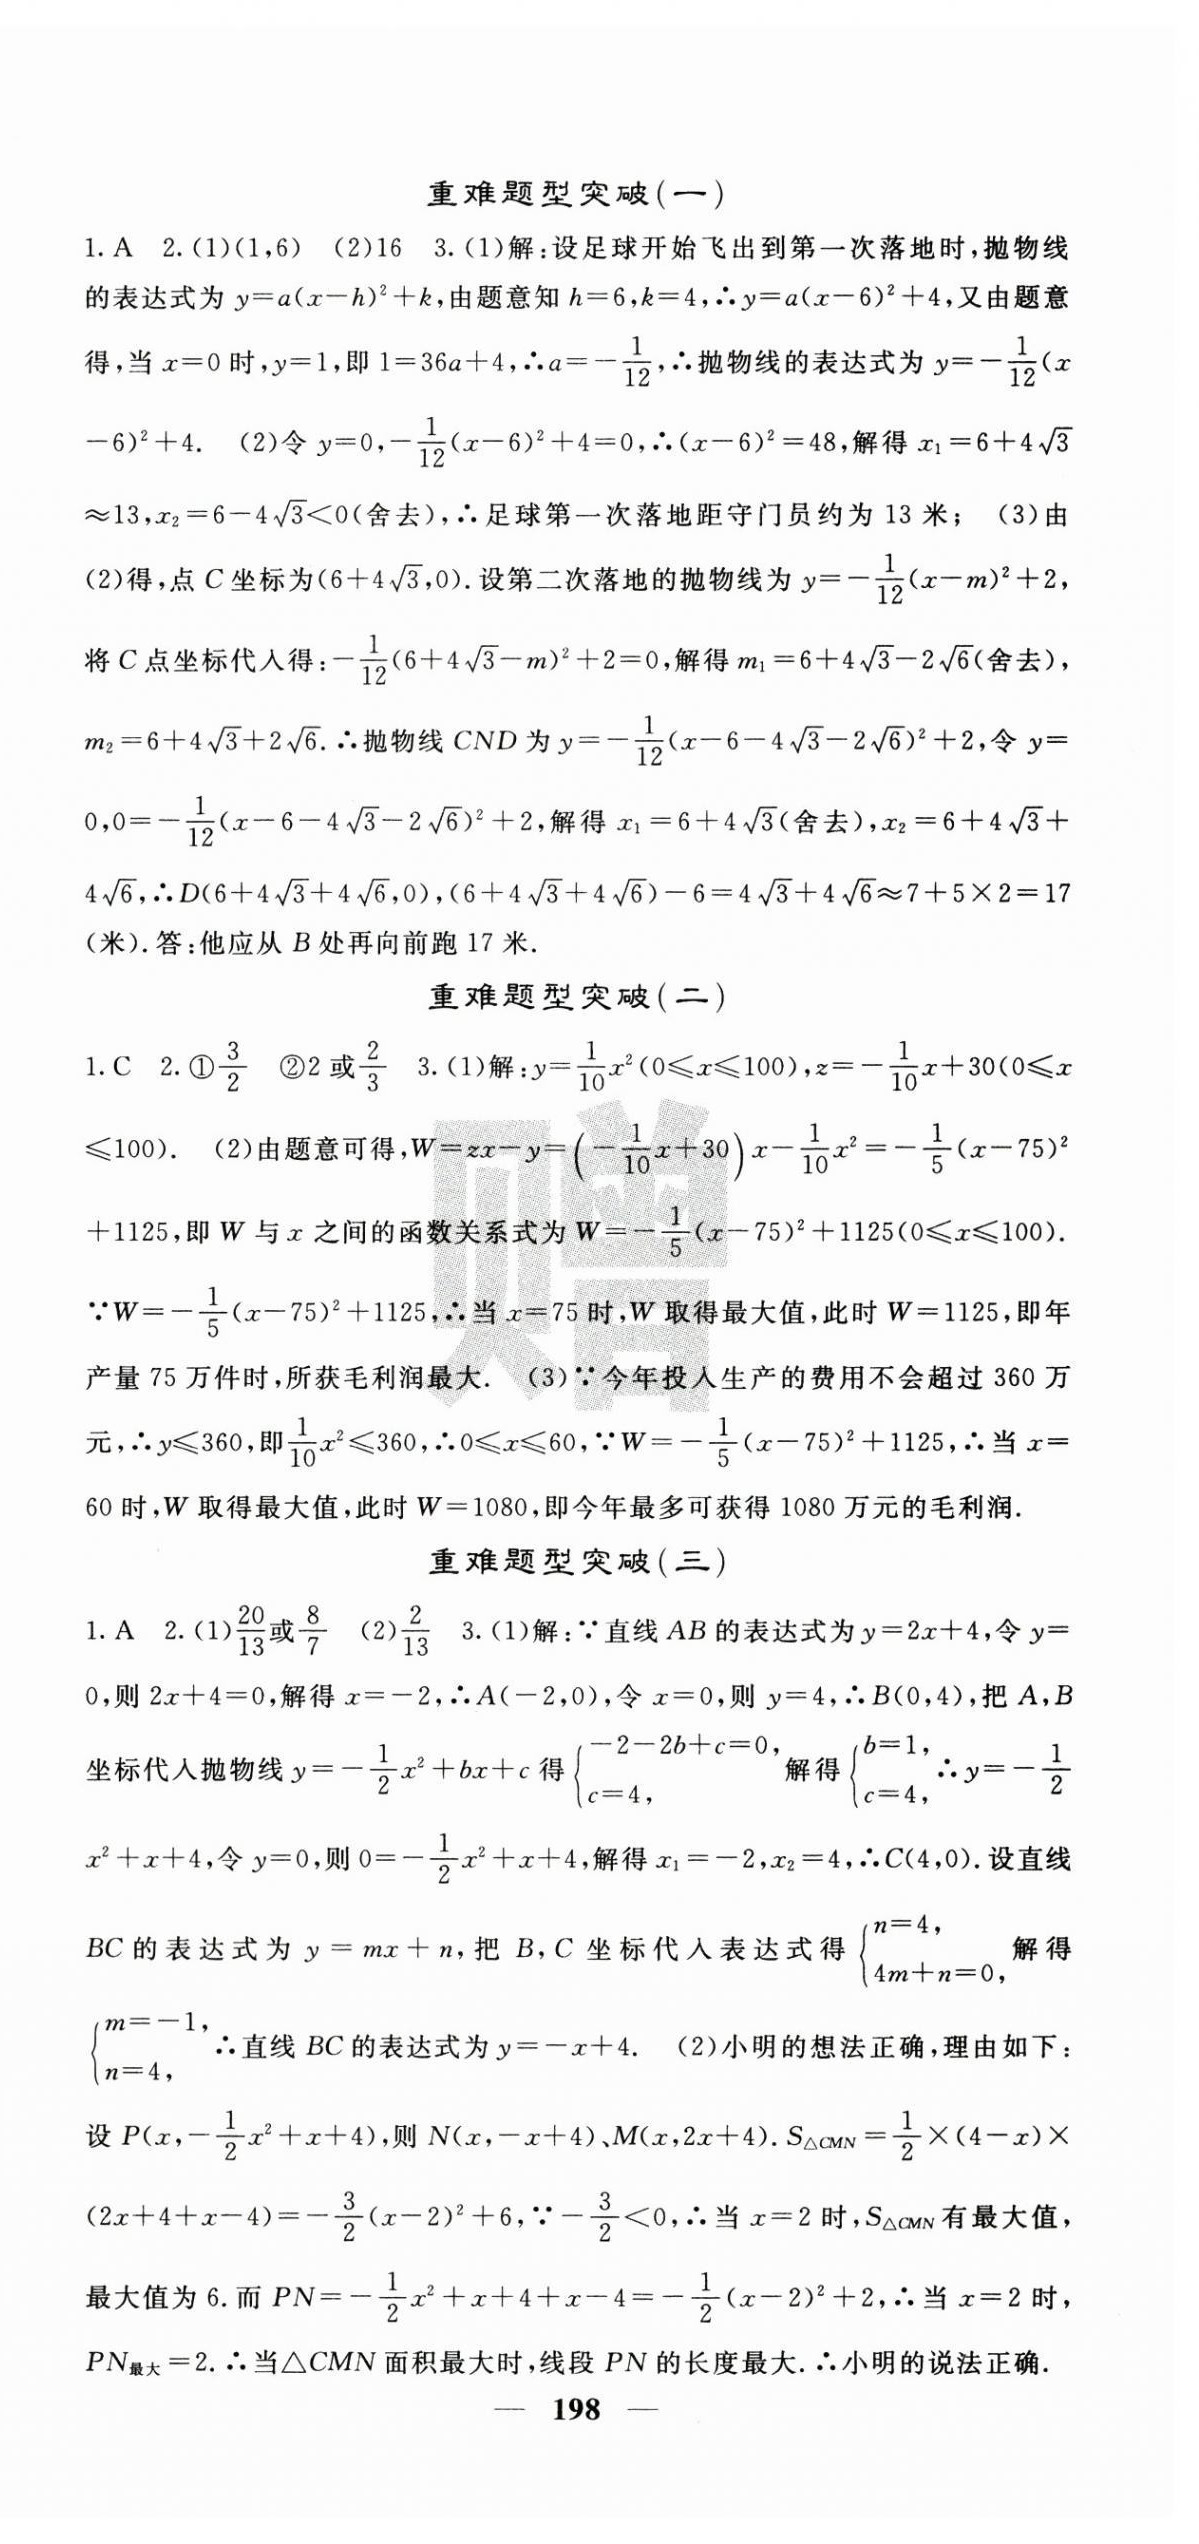 重难题型突破(一)
1. A 2. (1)(1,6) (2)16 3. (1)解:设足球开始飞出到第一次落地时,抛物线
的表达式为 y=a(x-h)²+k,由题意知 h=6,k=4,∴y=a(x-6)²+4,又由题意
得,当 x=0 时,y=1,即 1=36a+4,∴a=-1/12,∴抛物线的表达式为 y=-1/12(x
-6)²+4. (2)令 y=0,-1/12(x-6)²+4=0,∴(x-6)²=48,解得 x₁=6+4√3
≈13,x₂=6-4√3<0(舍去),∴足球第一次落地距守门员约为 13 米; (3)由
(2)得,点 C 坐标为(6+4√3,0).设第二次落地的抛物线为 y=-1/12(x-m)²+2,
将 C 点坐标代入得:-1/12(6+4√3-m)²+2=0,解得 m₁=6+4√3-2√6(舍去),
m₂=6+4√3+2√6.∴抛物线 CND 为 y=-1/12(x-6-4√3-2√6)²+2,令 y=
0,0=-1/12(x-6-4√3-2√6)²+2,解得 x₁=6+4√3(舍去),x₂=6+4√3+
4√6,∴D(6+4√3+4√6,0),(6+4√3+4√6)-6=4√3+4√6≈7+5×2=17
(米).答:他应从 B 处再向前跑 17 米.
重难题型突破(二)
1. C 2. ①3/2 ②2 或 2/3 3. (1)解:y=1/10x²(0≤x≤100),z=-1/10x+30(0≤x
≤100). (2)由题意可得,W=zx-y=(-1/10x+30)x-1/10x²=-1/5(x-75)²
+1125,即 W 与 x 之间的函数关系式为 W=-1/5(x-75)²+1125(0≤x≤100).
∵W=-1/5(x-75)²+1125,∴当 x=75 时,W 取得最大值,此时 W=1125,即年
产量 75 万件时,所获毛利润最大. (3)∵今年投入生产的费用不会超过 360 万
元,∴y≤360,即1/10x²≤360,∴0≤x≤60,∵W=-1/5(x-75)²+1125,∴当 x=
60 时,W 取得最大值,此时 W=1080,即今年最多可获得 1080 万元的毛利润.
赠
重难题型突破(三)
1. A 2. (1)20/13或8/7 (2)2/13 3. (1)解:∵直线 AB 的表达式为 y=2x+4,令 y=
0,则 2x+4=0,解得 x=-2,∴A(-2,0),令 x=0,则 y=4,∴B(0,4),把 A,B
坐标代入抛物线 y=-1/2x²+bx+c 得{-2-2b+c=0, c=4, 解得{b=1, c=4, ∴y=-1/2
x²+x+4,令 y=0,则 0=-1/2x²+x+4,解得 x₁=-2,x₂=4,∴C(4,0).设直线
BC 的表达式为 y=mx+n,把 B,C 坐标代入表达式得{n=4, 4m+n=0, 解得
{m=-1, n=4, ∴直线 BC 的表达式为 y=-x+4. (2)小明的想法正确,理由如下:
设 P(x,-1/2x²+x+4),则 N(x,-x+4)、M(x,2x+4).S△CMN=1/2×(4-x)×
(2x+4+x-4)=-3/2(x-2)²+6,∵-3/2<0,∴当 x=2 时,S△CMN有最大值,
最大值为 6.而 PN=-1/2x²+x+4+x-4=-1/2(x-2)²+2,∴当 x=2 时,
PN最大=2.∴当△CMN 面积最大时,线段 PN 的长度最大.∴小明的说法正确.
— 198 —